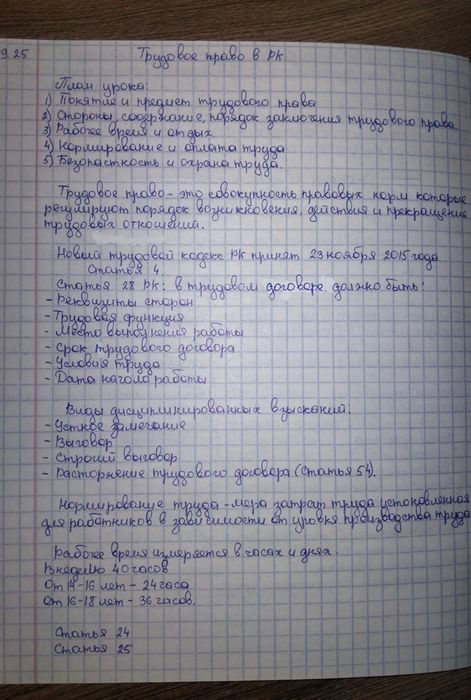 9.25 Трудовое право в РК
План урока:
1) Понятие и предмет трудового права
2) Стороны, содержание, порядок заключения трудового права.
3) Рабочее время и отдых.
4) Нормирование и оплата труда
5) Безопасткость и охрана труда.
Трудовое право - это совокупность правовых норм которые
регулируют порядок возникновения, действия и прекращение
трудовых отношений.
Новый трудовой кодекс РК принят 23 ноября 2015 года.
Статья 4
Статья 28 РК: в трудовом договоре должно быть:
- Реквизиты сторон
- Трудовая функция
- Место выполнения работы
- Срок трудового договора
- Условия труда
- Дата начало работы
Виды дисциплинированных взысканий:
- Устное замечание
- Выговор
- Строгий выговор
- Расторжение трудового договора (Статья 54).
Нормирование труда - мера затрат труда установленная
для работников в зависимости от уровня производства труда
Рабочее время измеряется в часах и днях.
В неделю 40 часов
От 14-16 лет - 24 часа
От 16-18 лет - 36 часов.
Статья 24
Статья 25